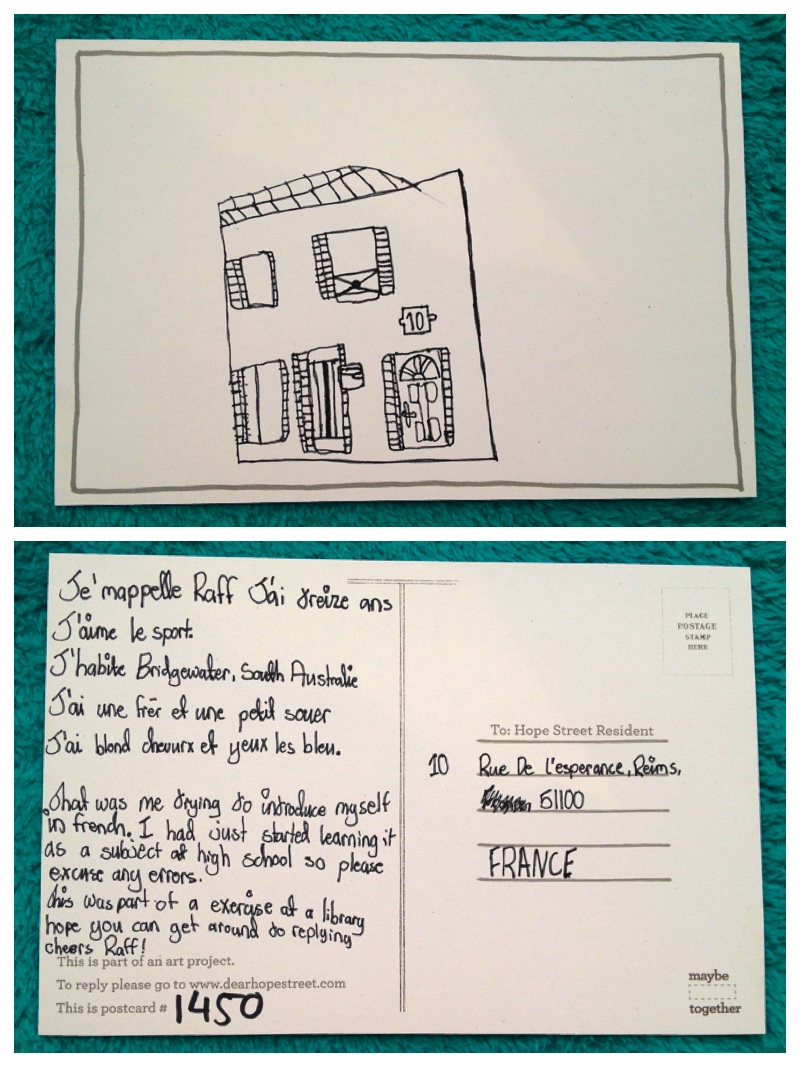 10
Je'mappelle Raff J'ai treize ans
J'aime le sport.
J'habite Bridgewater, South Australie
J'ai une frēr et une petit souer
J'ai blond chevurx et yeux les bleu.
that was me trying to introduce myself
in french. I had just started learning it
as a subject at high school so please
excuse any errors.
this was part of a exercise at a library
hope you can get around to replying
cheers Raff!
This is part of an art project.
To reply please go to www.dearhopestreet.com
This is postcard # 1450
PLACE
POSTAGE
STAMP
HERE
To: Hope Street Resident
10 Rue De L'esperance, Reims,
51100
FRANCE
maybe
together